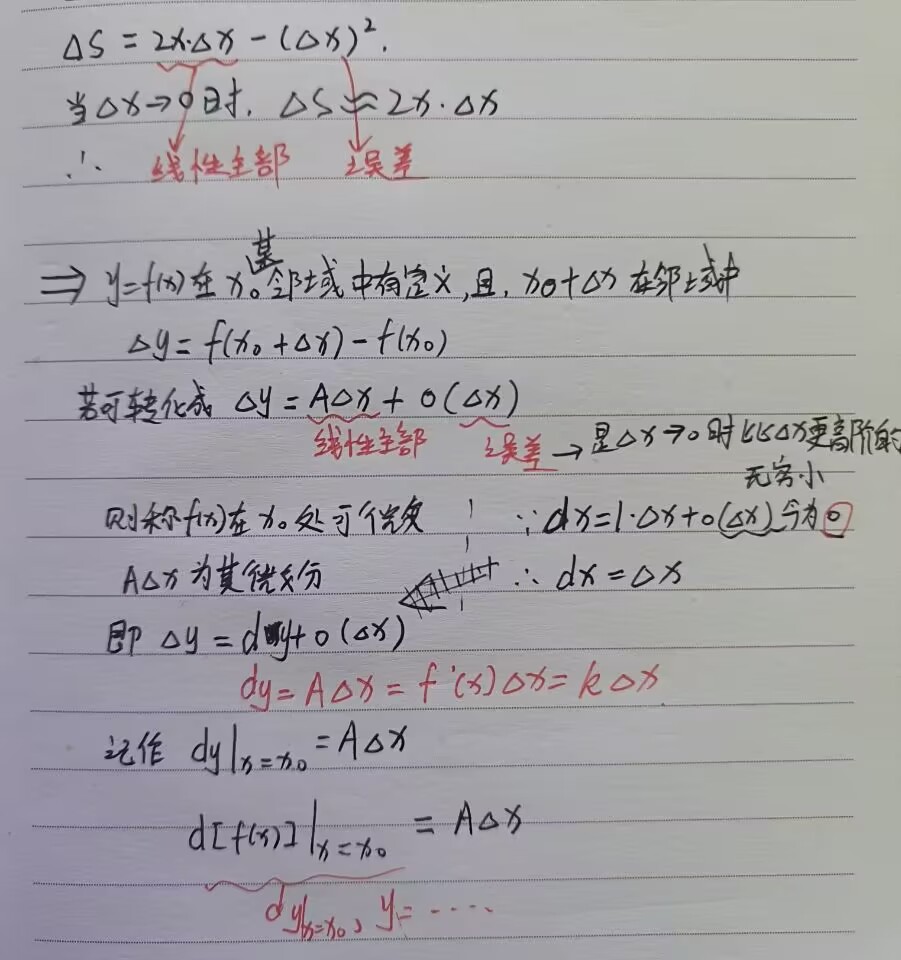 ΔS = 2x·Δx - (Δx)².
当Δx→0时, ΔS ≈ 2x·Δx
∴ 线性主部 误差
⇒ y=f(x)在x₀某邻域中有定义,且,x₀+Δx在邻域中
Δy = f(x₀+Δx) - f(x₀)
若可转化成 Δy = AΔx + o(Δx)
线性主部 误差 → 是Δx→0时比Δx更高阶的
无穷小
则称f(x)在x₀处可微 ∵ dx = 1·Δx + o(Δx) 令为0
AΔx为其微分 ∴ dx = Δx
即 Δy = dy + o(Δx)
dy = AΔx = f'(x)Δx = kΔx
记作 dy|x=x₀ = AΔx
d[f(x)]|x=x₀ = AΔx
dy|x=x₀, y=·····